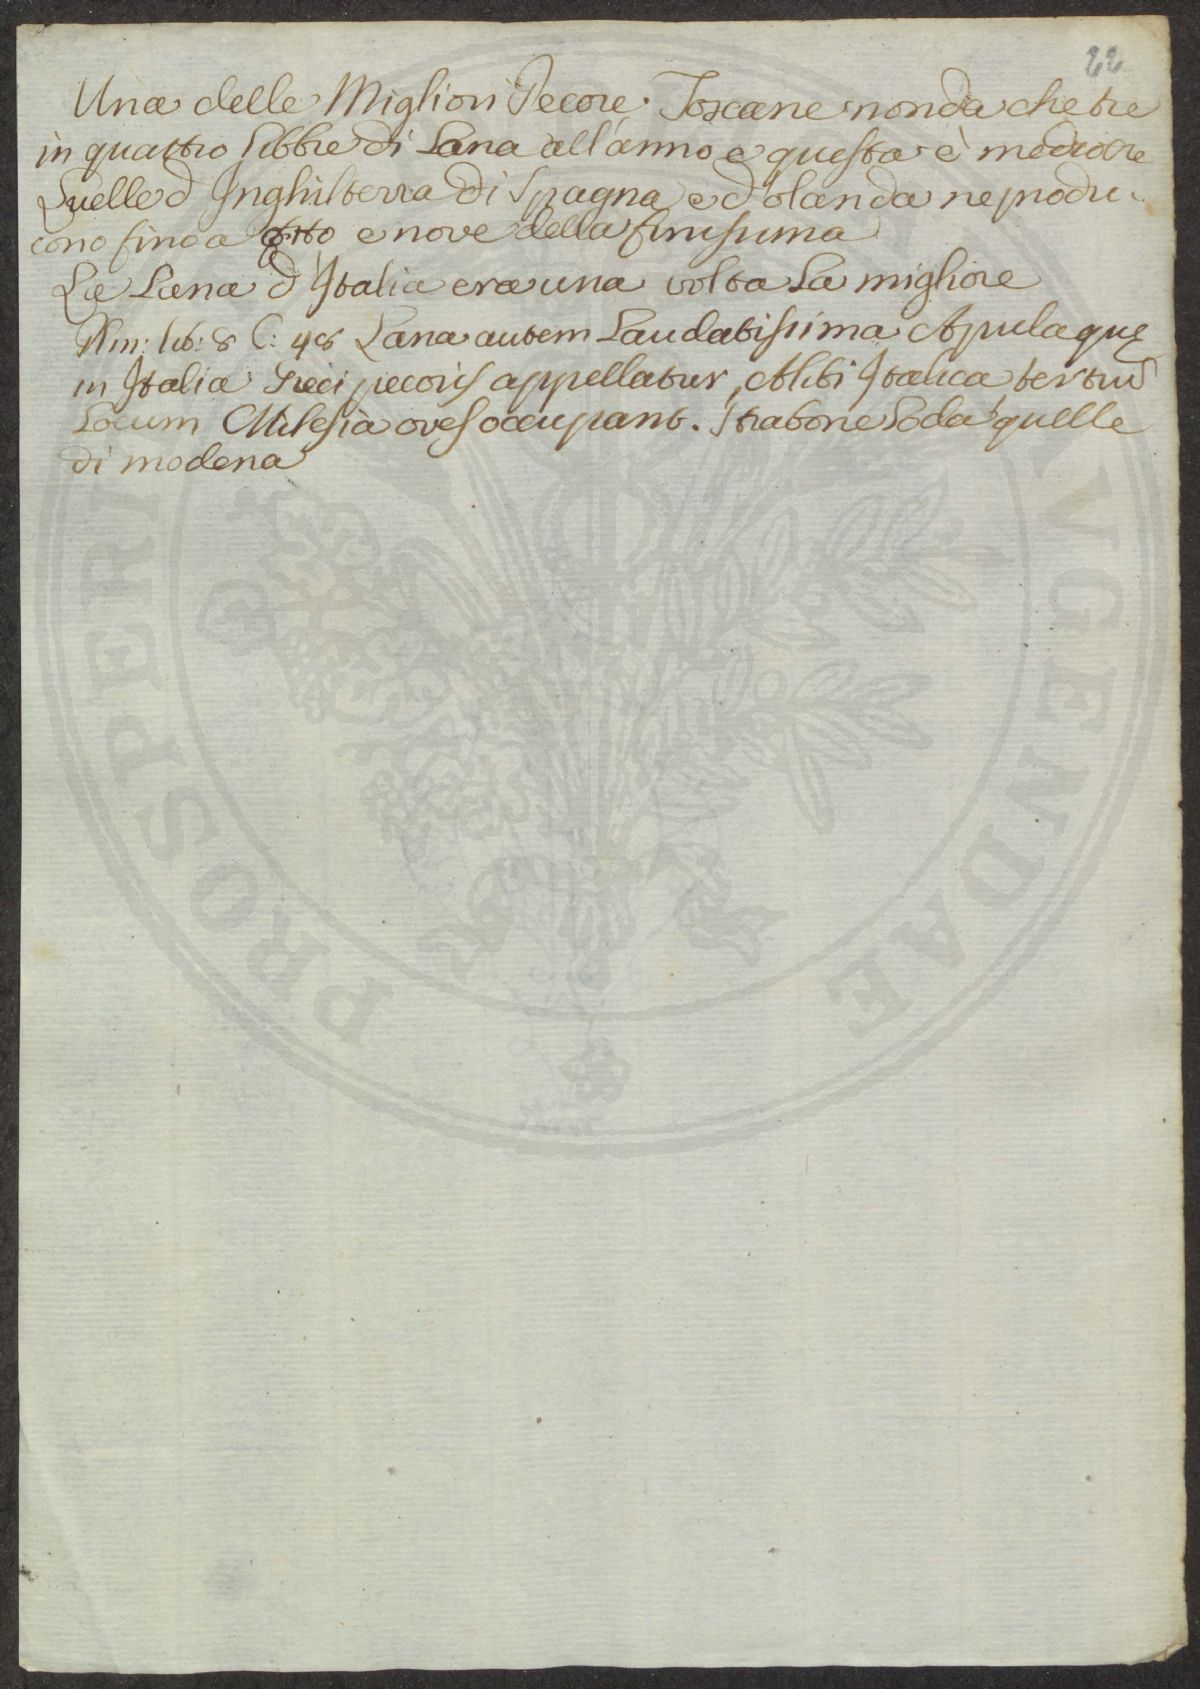 22
Una delle Migliori Pecore Toscane non da che tre
in quattro libbre di Lana all'anno e questa è mediocre
Quelle d Inghilterra di Spagna e d'olanda ne produ-
cono fino a otto e nove della finissima
La Lana d'Italia era una volta La migliore
Plin: lib: 8 C: 48 Lana autem Laudatissima Apula quę
in Italia Greci pecoris appellatur, Alibi Italica tertiū
Locum Milesia oves occupant. Strabone Loda quelle
di modena
PROSPERI
AVGENDAE